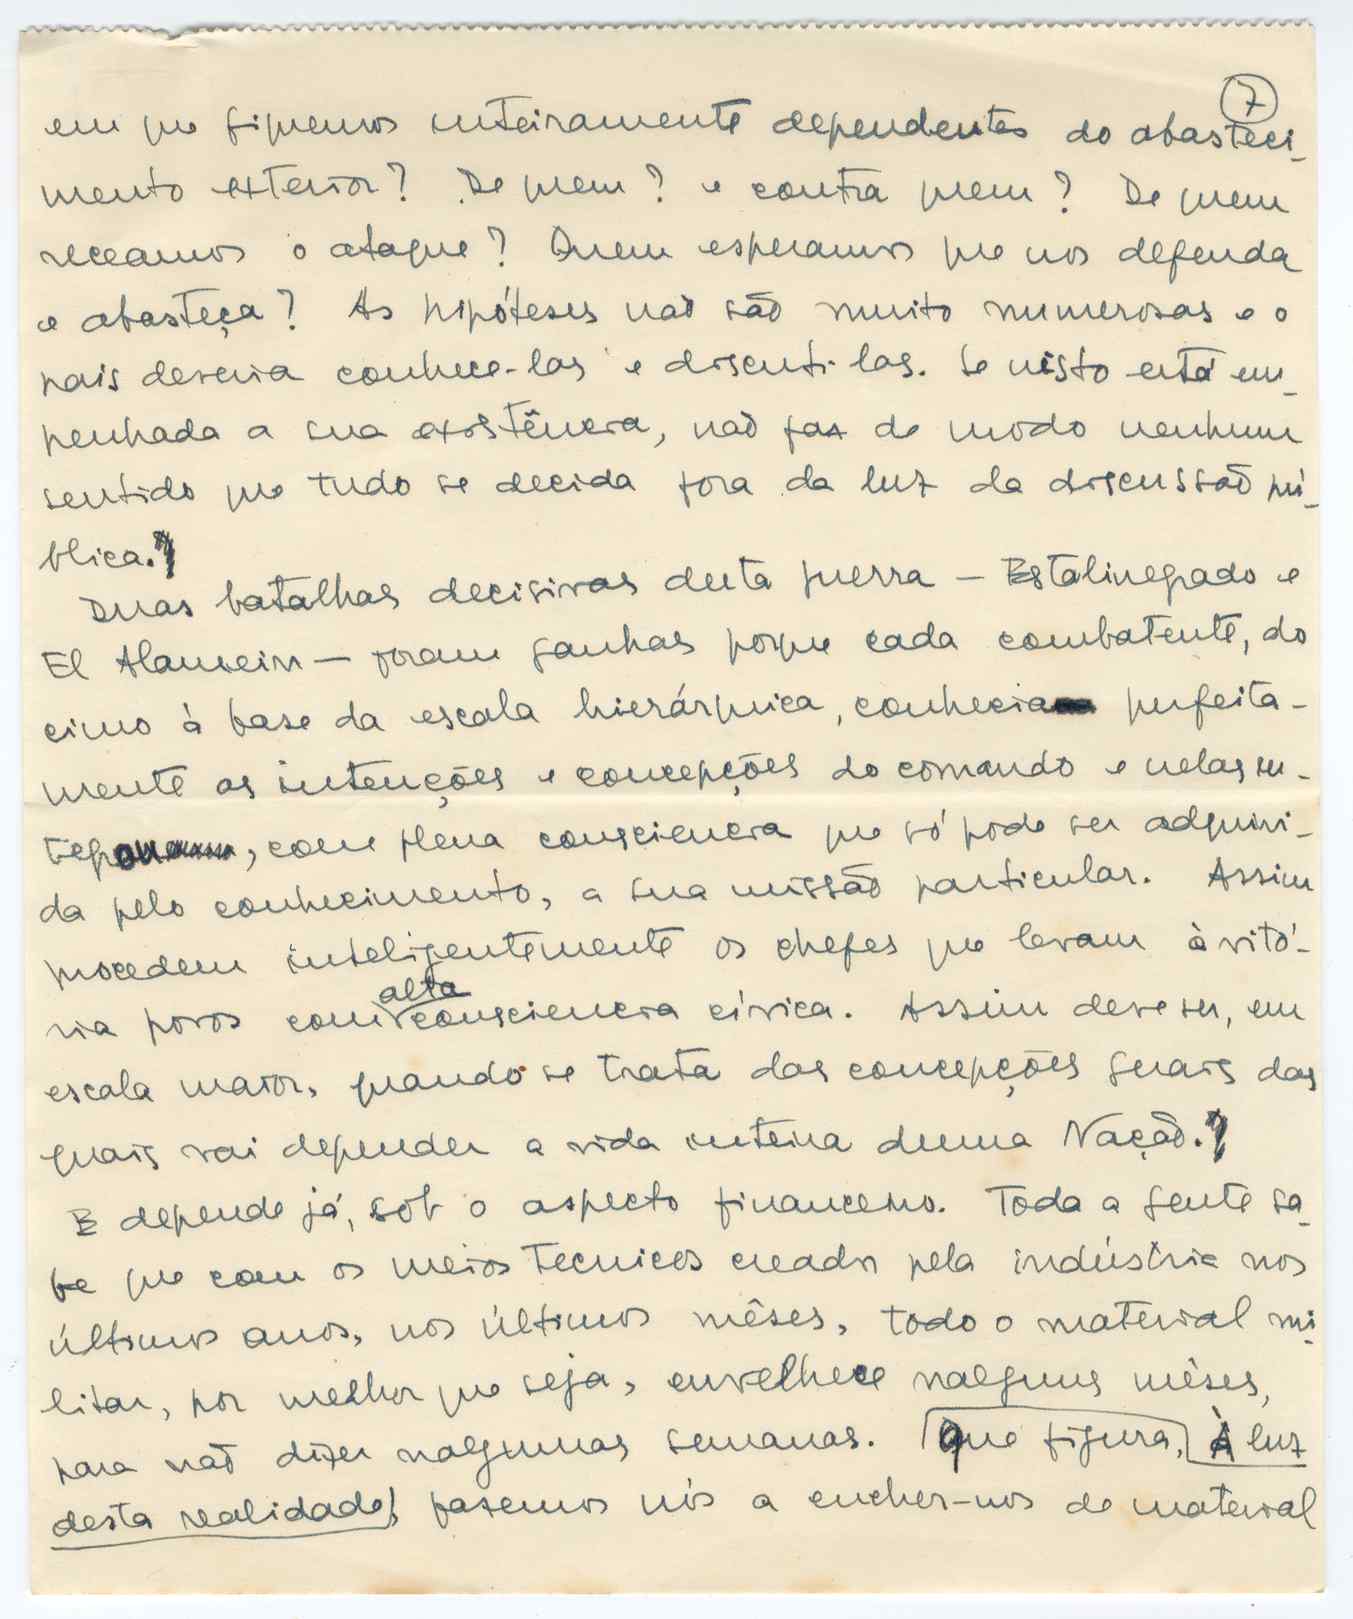 7
em que fiquemos inteiramente dependentes do abasteci-
mento exterior? De quem? e contra quem? De quem
receamos o ataque? Quem esperamos que nos defenda
e abasteça? As hipóteses não são muito numerosas e o
país deveria conhece-las e discuti-las. Se nisto está em-
penhada a sua existência, não faz de modo nenhum
sentido que tudo se decida fora da luz da discussão pú-
blica.
Duas batalhas decisivas desta guerra — Estalinegrado e
El Alamein — foram ganhas porque cada combatente, do
cimo à base da escala hierárquica, conhecia perfeita-
mente as intenções e concepções do comando e nelas in-
tegrou, com plena consciencia que só pode ser adquiri-
da pelo conhecimento, a sua missão particular. Assim
procedem inteligentemente os chefes que levam à vitó-
ria povos com alta consciencia cívica. Assim deve ser, em
escala maior, quando se trata das concepções gerais das
quais vai depender a vida inteira duma Nação.
E depende já, sob o aspecto financeiro. Toda a gente sa-
be que com os meios tecnicos creados pela indústria nos
últimos anos, nos últimos mêses, todo o material mi-
litar, por melhor que seja, envelhece nalguns mêses,
para não dizer nalgumas semanas. Que figura, À luz
desta realidade, fazemos nós a encher-nos de material